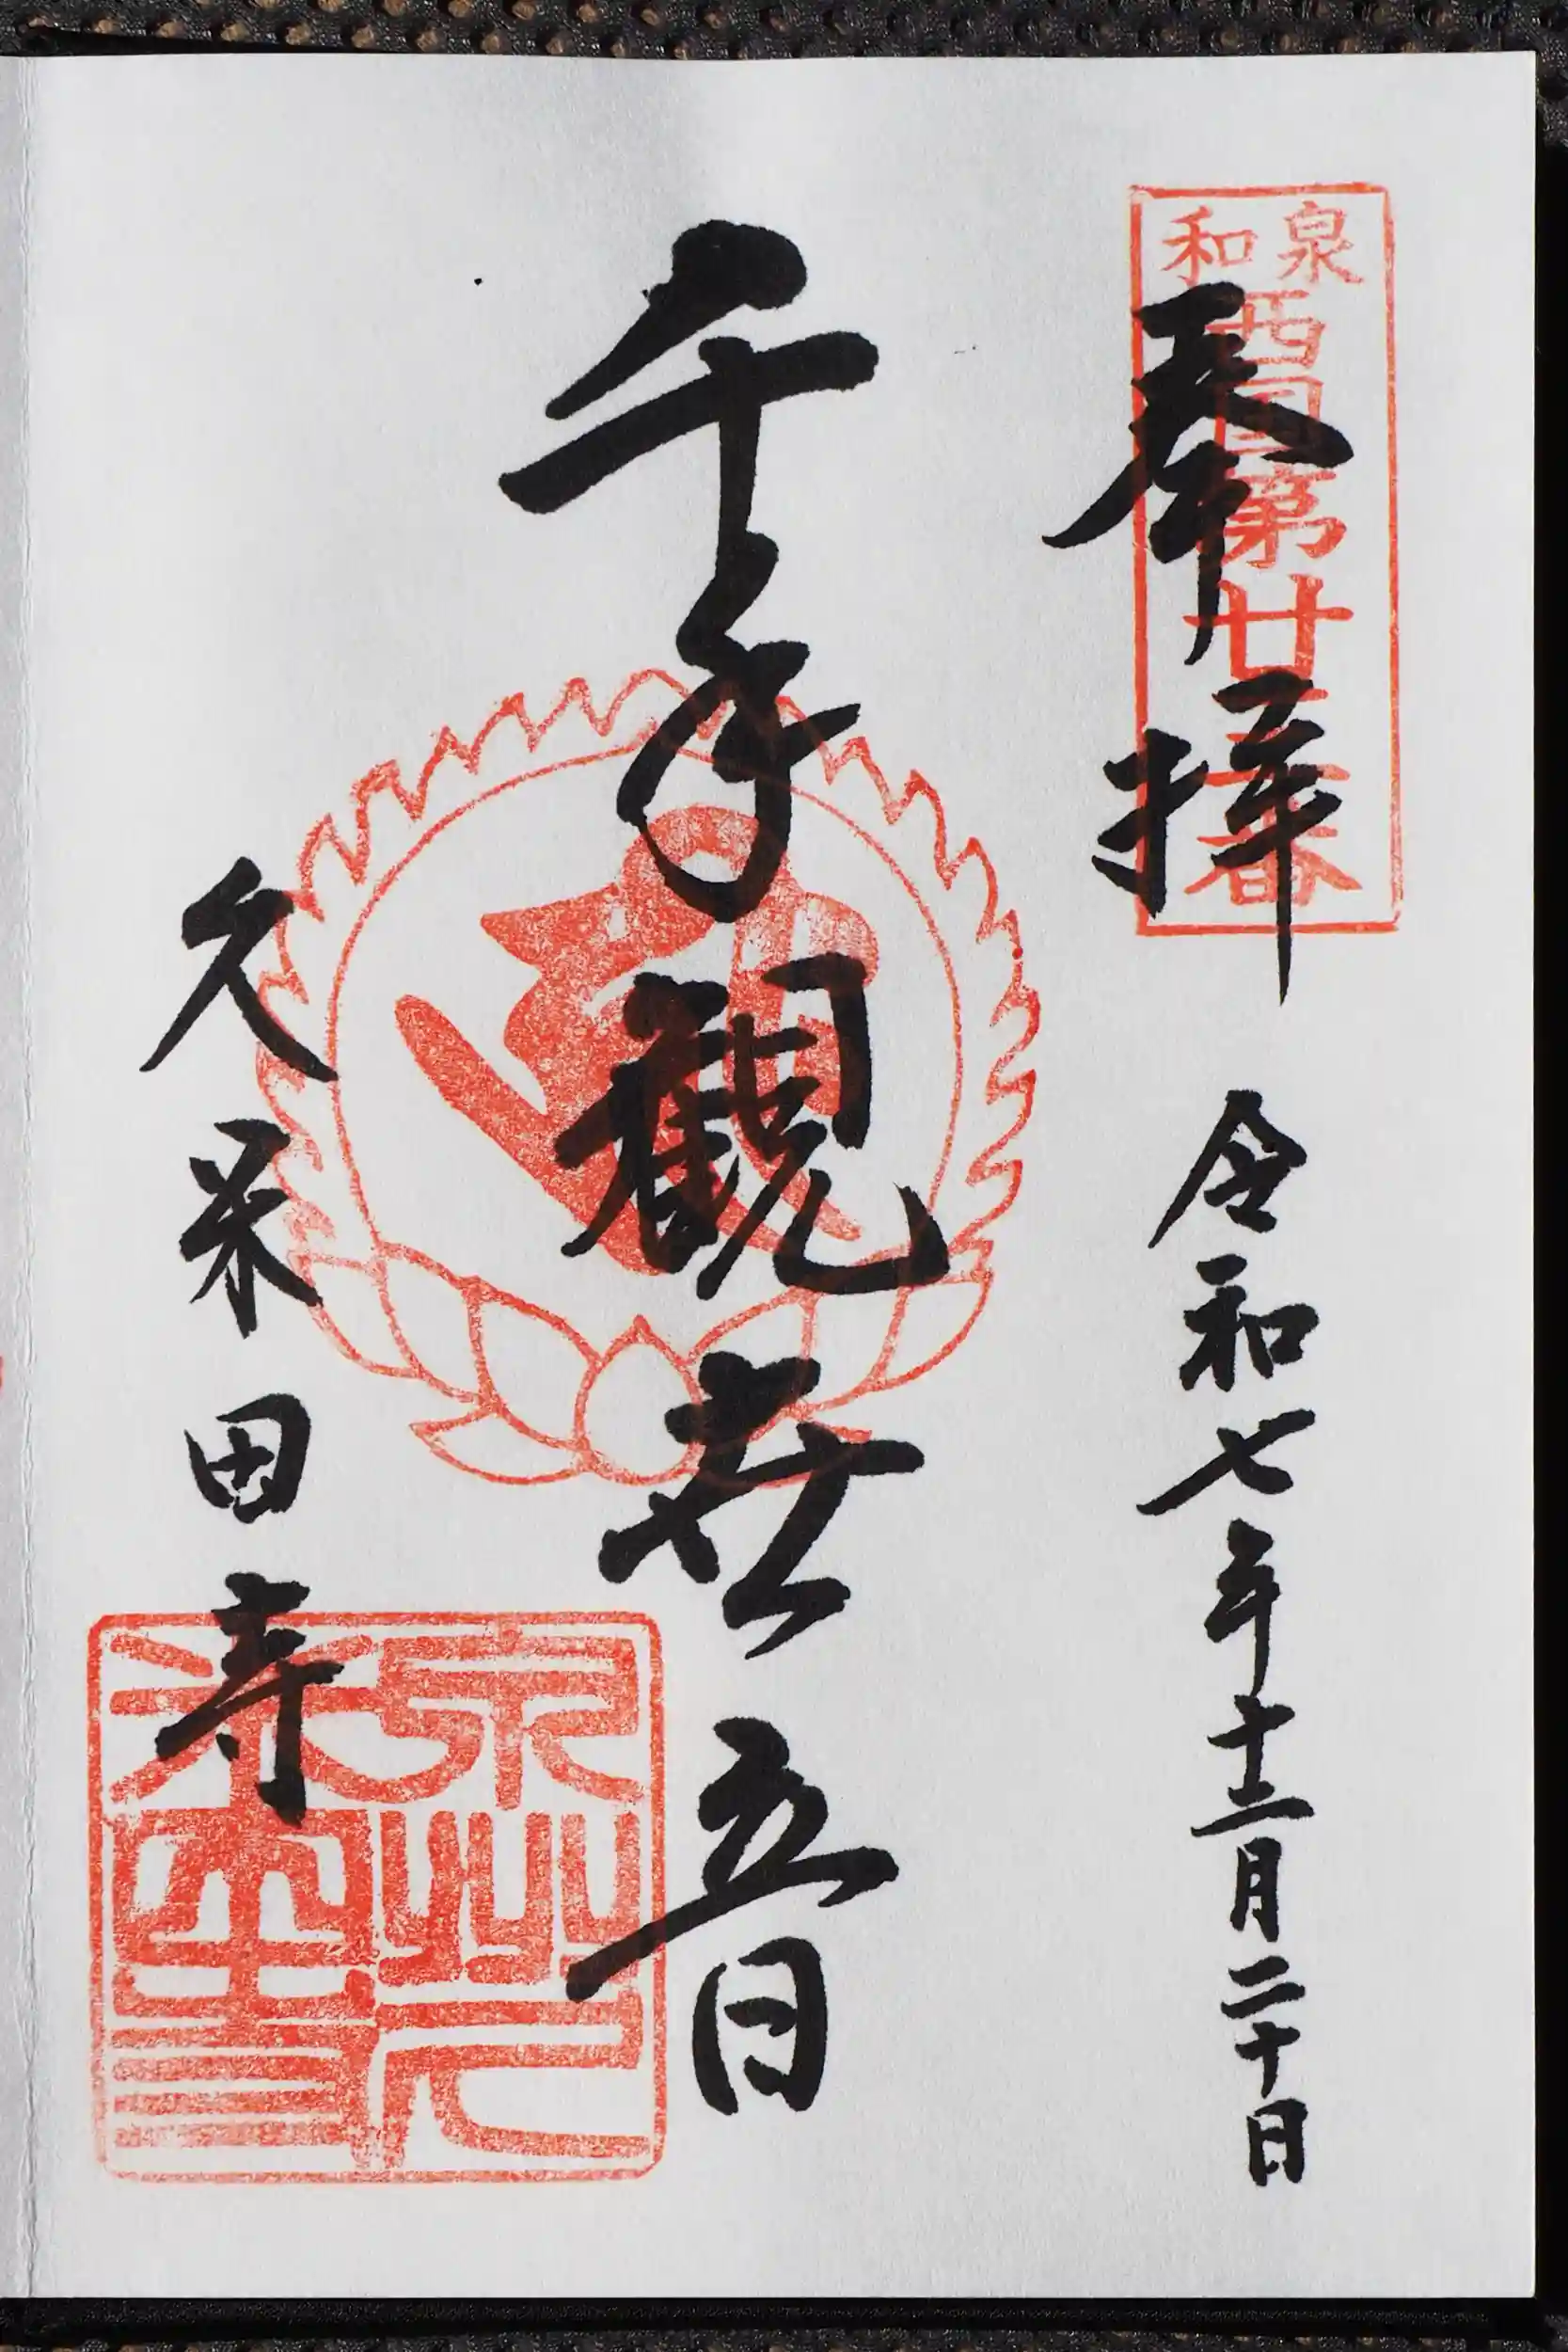 和泉
西国第廿番
奉拝 令和七年十二月二十日
千手観世音
久米田寺
泉州久
米田寺